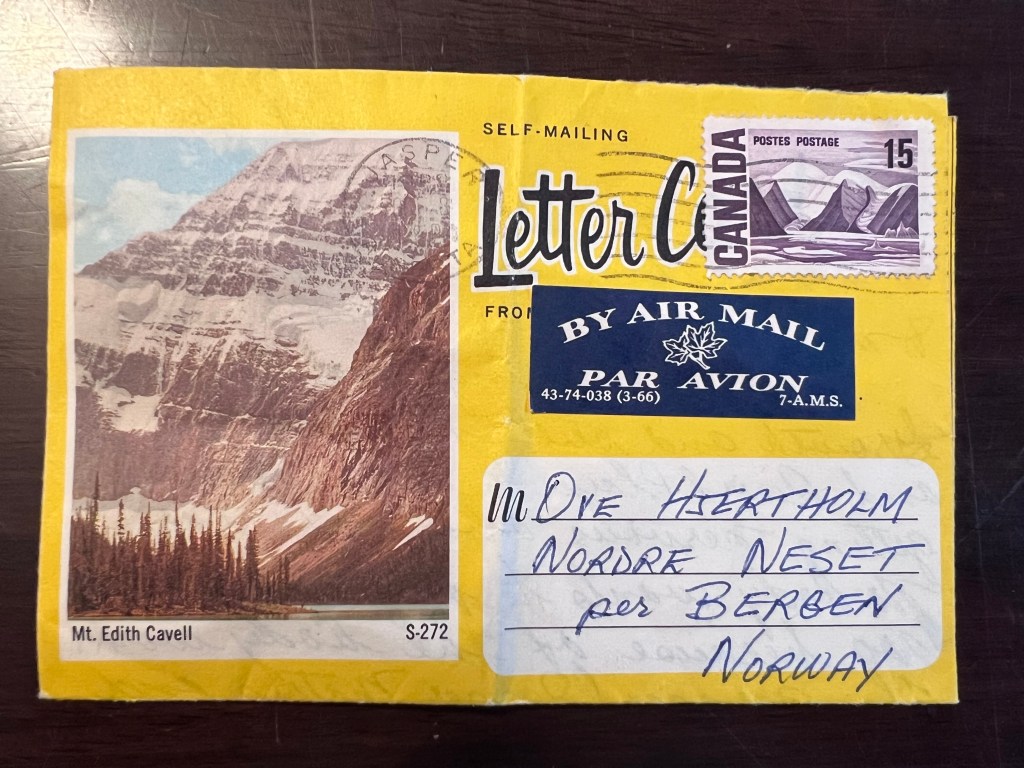 SELF-MAILING
Letter
CANADA
POSTES POSTAGE
15
JASPER
BY AIR MAIL
PAR AVION
43-74-038 (3-66)
7-A.M.S.
M OVE HJERTHOLM
NORDRE NESET
per BERGEN
NORWAY
Mt. Edith Cavell
S-272